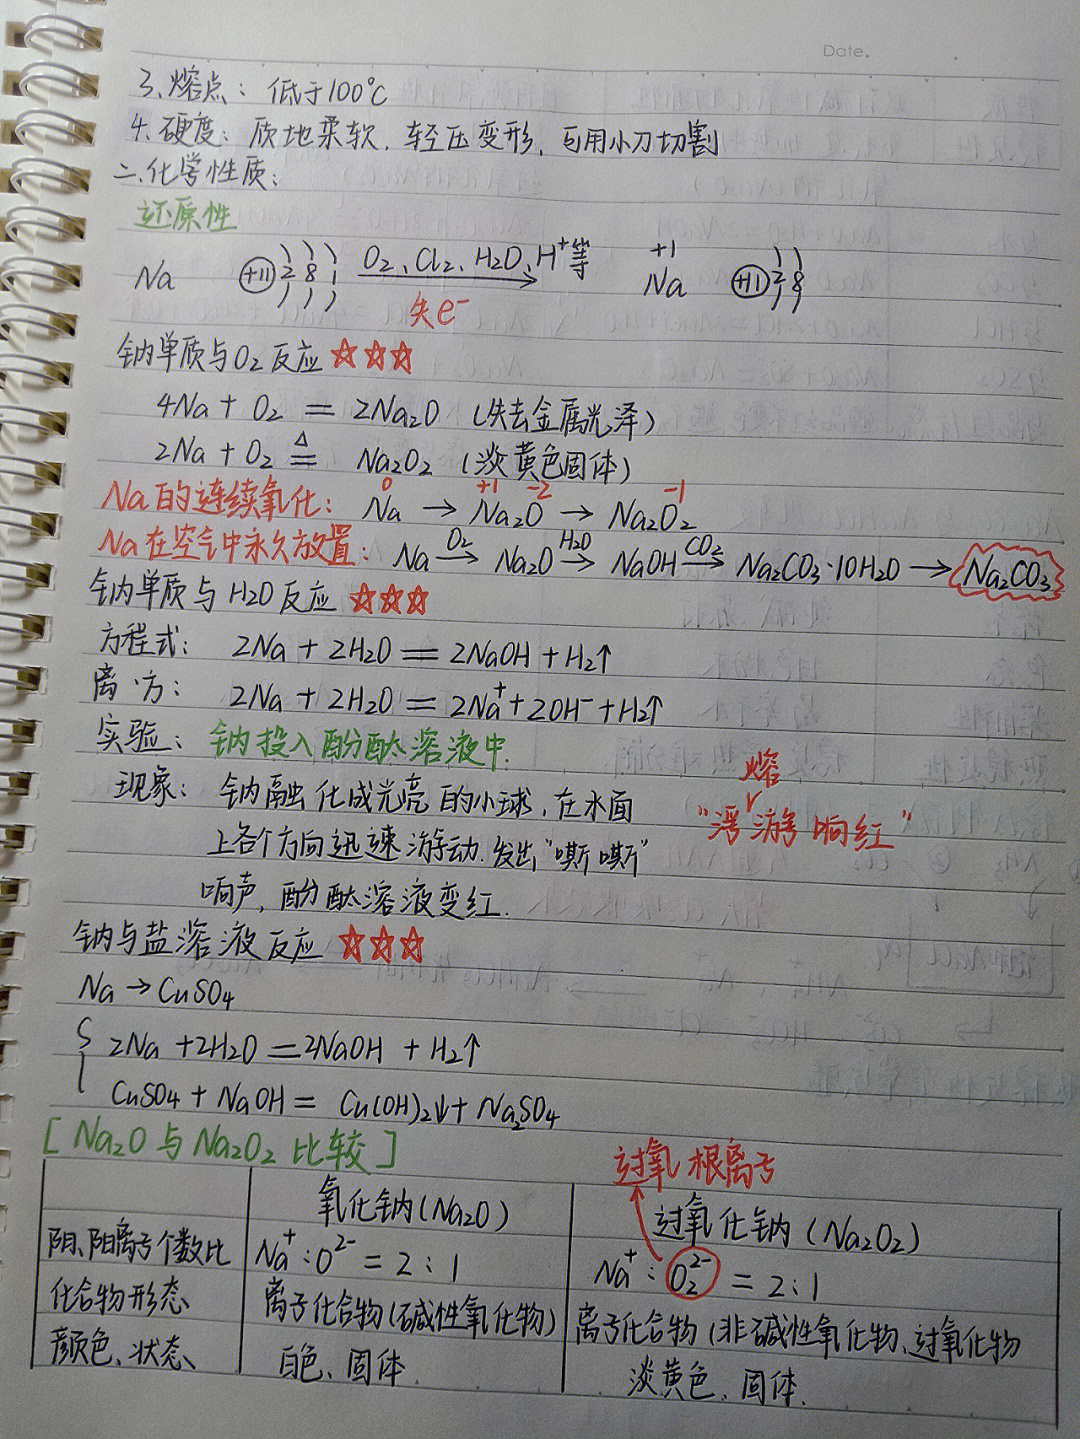 Date.
3、熔点：低于100℃
4、硬度：质地柔软，轻压变形，可用小刀切割
二、化学性质：
还原性
Na (+11) 2 8 1 O₂、Cl₂、H₂O、H⁺等 失e⁻ +1 Na (+11) 2 8
钠单质与O₂反应 ☆☆☆
4Na + O₂ = 2Na₂O (失去金属光泽)
2Na + O₂ ≜ Na₂O₂ (淡黄色固体)
Na的连续氧化： 0 Na → +1 -2 Na₂O → -1 Na₂O₂
Na在空气中永久放置： Na O₂→ Na₂O H₂O→ NaOH CO₂→ Na₂CO₃·10H₂O → Na₂CO₃
钠单质与H₂O反应 ☆☆☆
方程式： 2Na + 2H₂O = 2NaOH + H₂↑
离·方： 2Na + 2H₂O = 2Na⁺ + 2OH⁻ + H₂↑
实验：钠投入酚酞溶液中.
现象：钠融化成光亮的小球，在水面
上各个方向迅速游动.发出"嘶嘶"
响声，酚酞溶液变红.
"浮熔游响红"
钠与盐溶液反应 ☆☆☆
Na → CuSO₄
2Na + 2H₂O = 2NaOH + H₂↑
CuSO₄ + NaOH = Cu(OH)₂↓ + Na₂SO₄
[Na₂O与Na₂O₂比较]
过氧根离子
氧化钠(Na₂O) 过氧化钠(Na₂O₂)
阴、阳离子个数比 Na⁺:O²⁻=2:1 Na⁺:O₂²⁻=2:1
化合物形态 离子化合物(碱性氧化物) 离子化合物(非碱性氧化物、过氧化物
颜色、状态 白色、固体 淡黄色、固体.